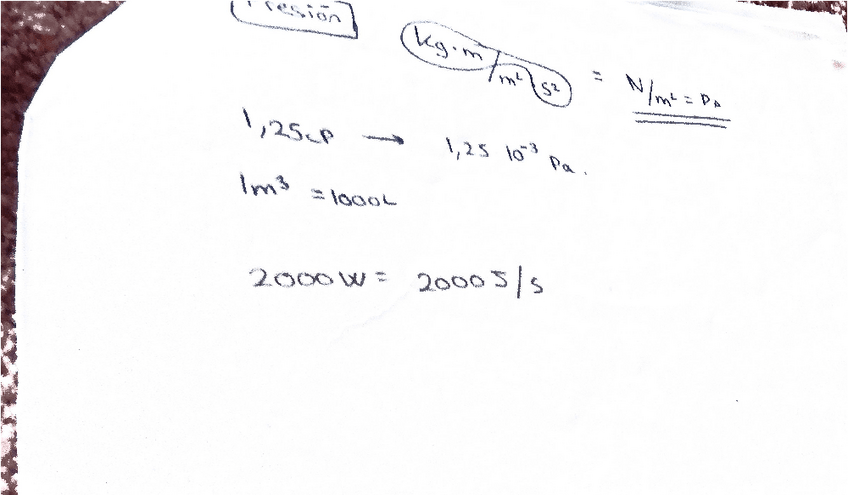 Presión
kg·m/m² s² = N/m² = Pa
1,25cP → 1,25 10⁻³ Pa.
1m³ = 1000L
2000W = 2000 J/s